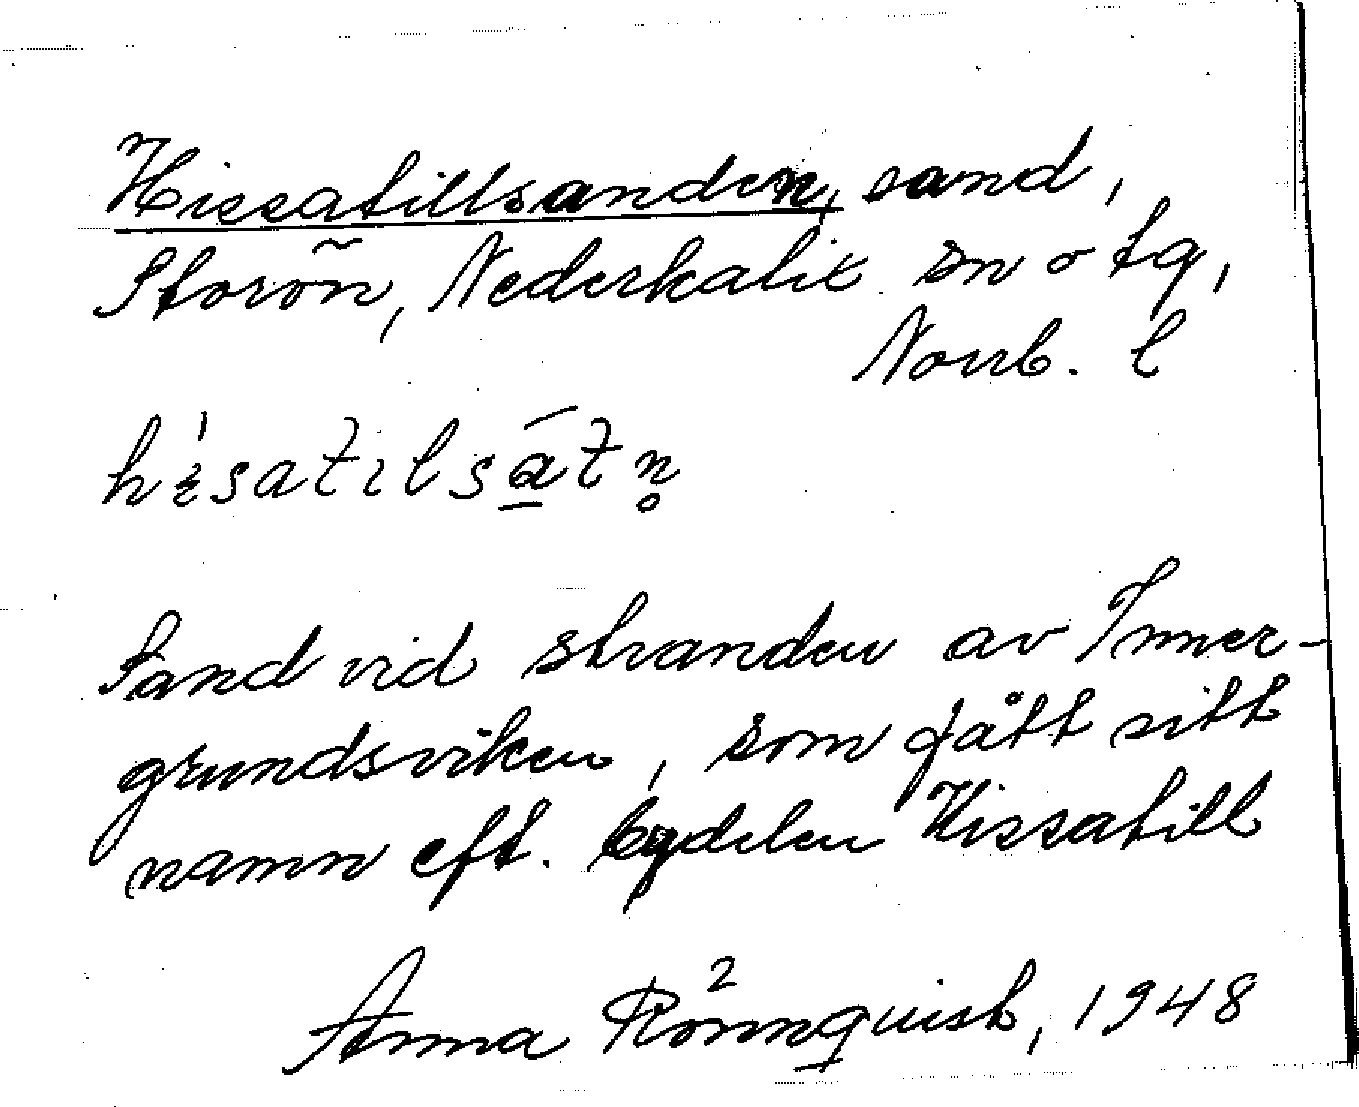 Hissatillsanden, sand,
Storön, Nederkalix sn o tg,
Norrb. l
hisatilsatn̥
Sand vid stranden av Inner-
grundsviken, som fått sitt
namn eft. bydelen Hissatill
Anna Rönnquist, 1948